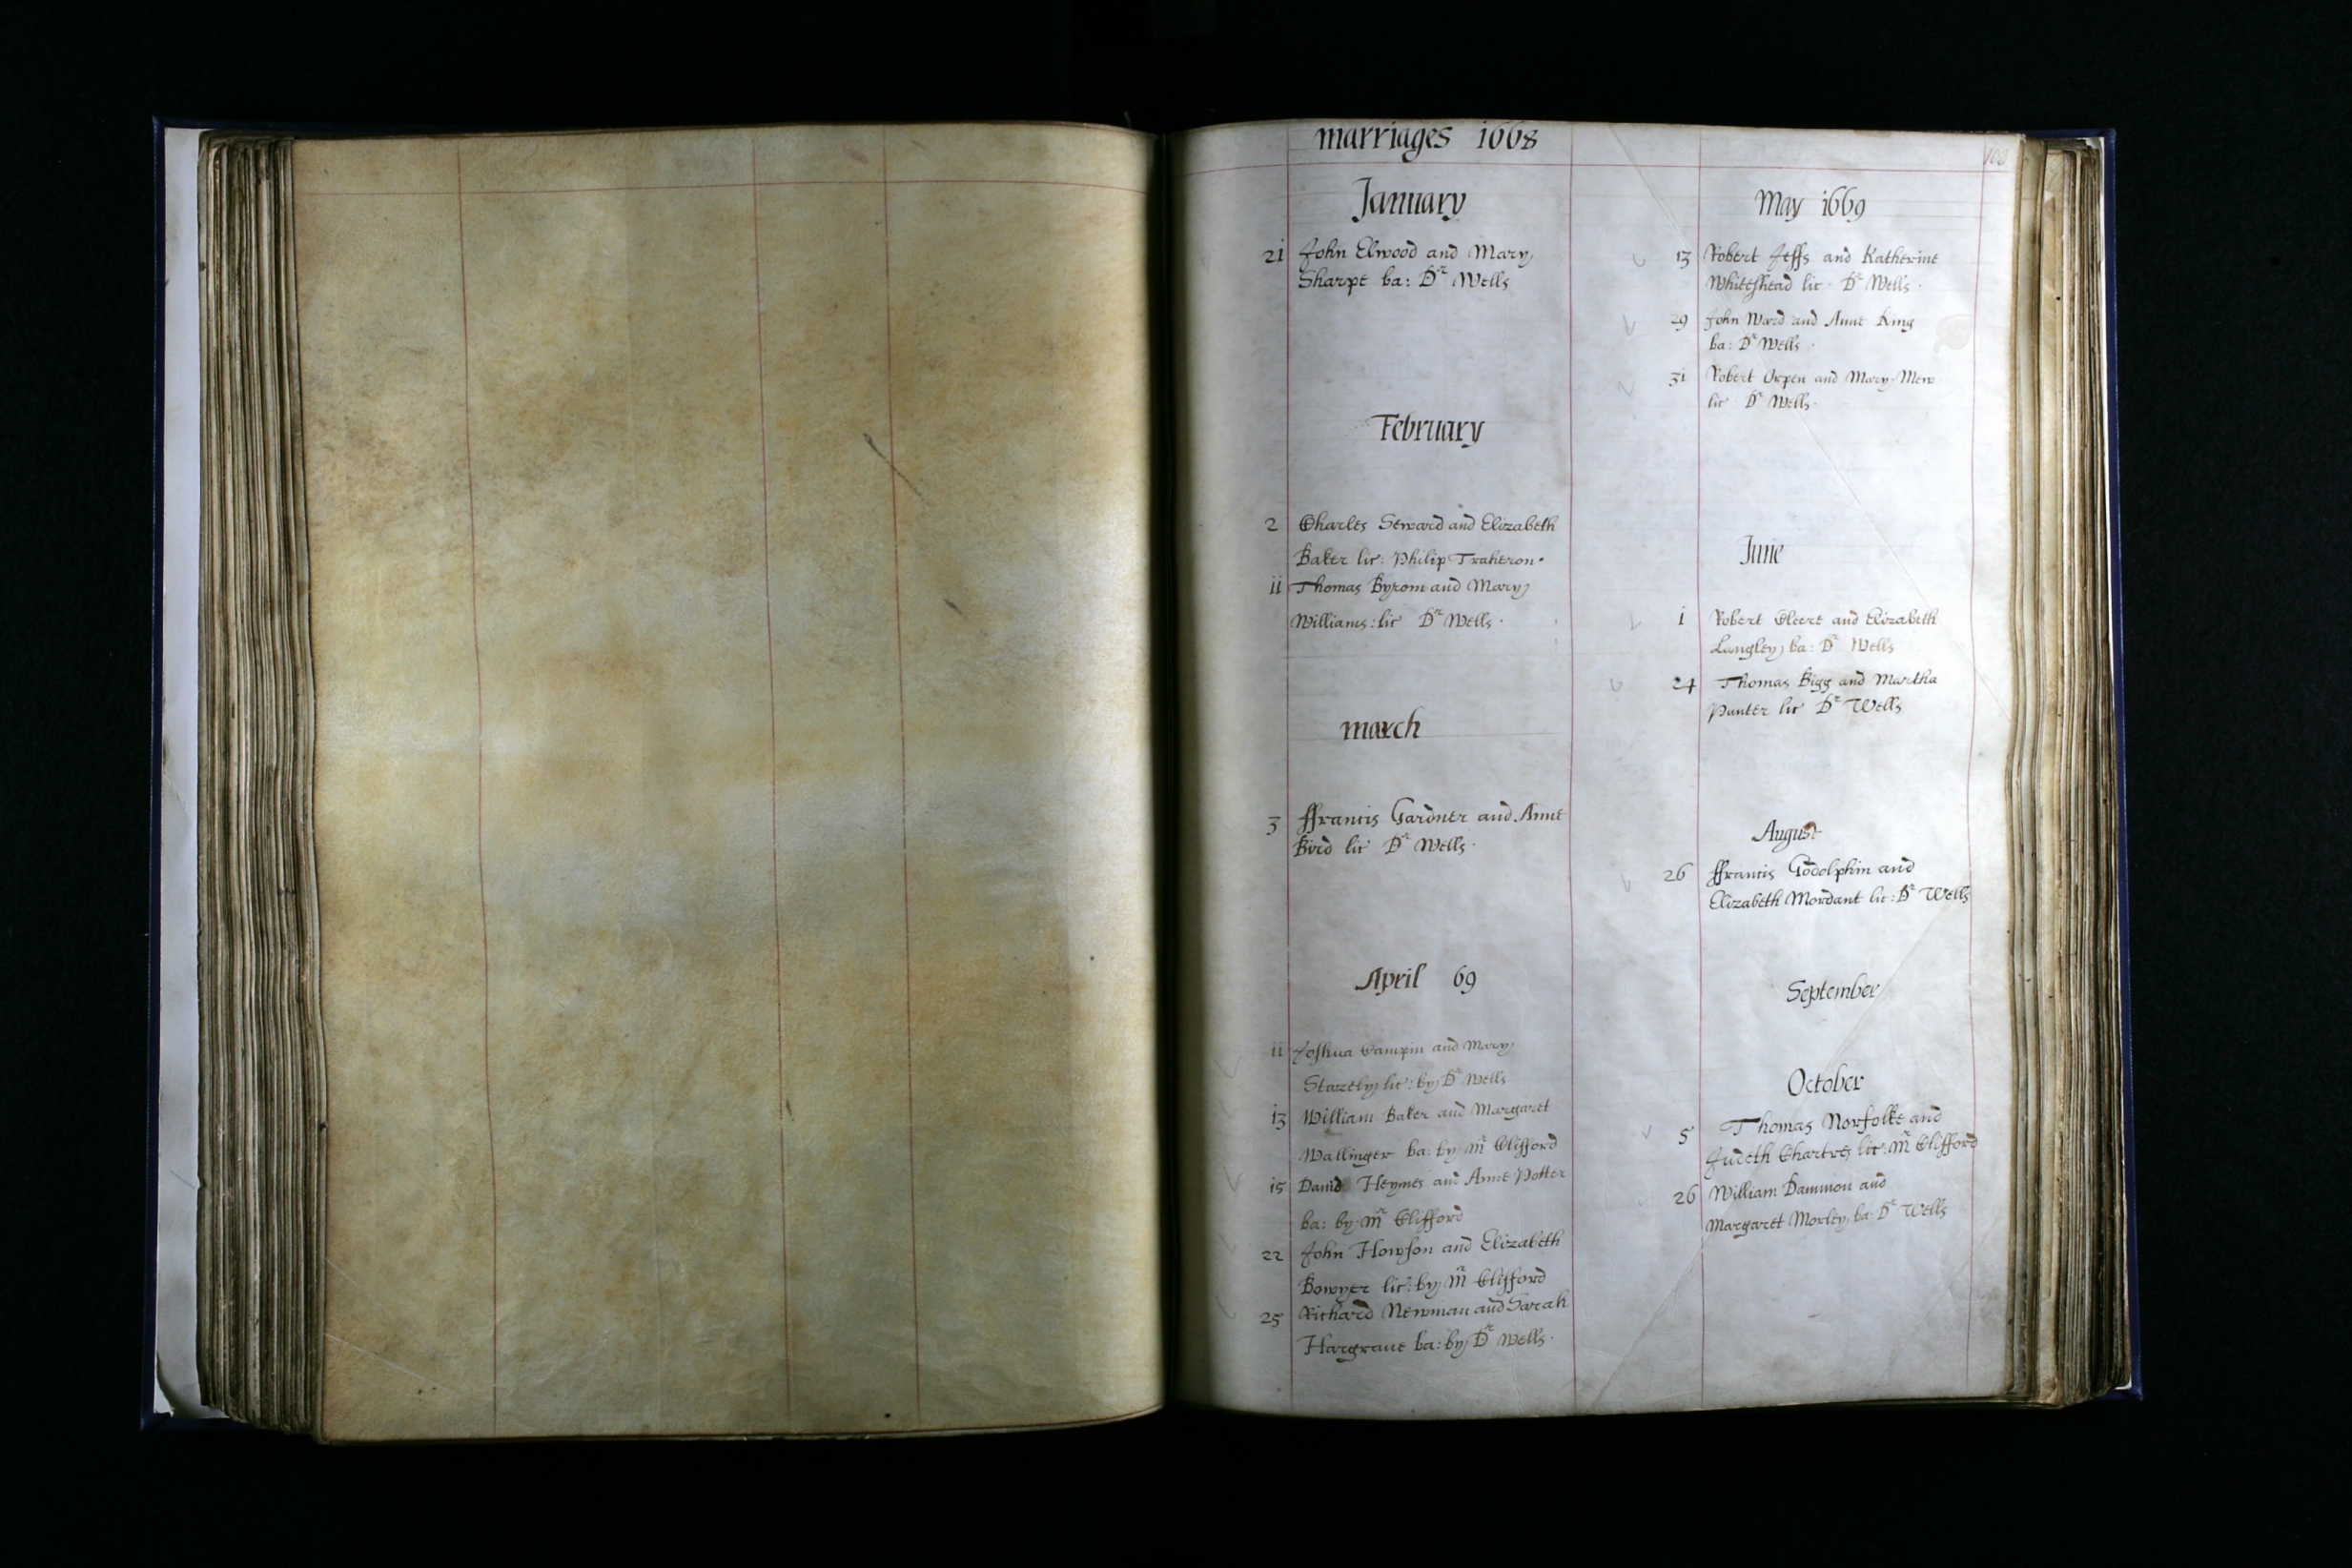 marriages 1668
January
21 John Elwood and Mary
Sharpe ba: Dr Wells
February
2 Charles Seward and Elizabeth
Baker lic: Philip Traheron.
11 Thomas Byrom and Mary
Williams: lic Dr Wells.
march
3 ffrancis Gardner and Anne
Bird lic Dr Wells.
April 69
11 Joshua Campin and Mary
lic: by Dr Wells
13 William Baker and Margaret
Wallinger ba: by Mr Clifford
15 David Heymes and Anne Potter
ba: by Mr Clifford
22 John Howson and Elizabeth
Bowyer lic: by Mr Clifford
25 Richard Newman and Sarah
Hargraue ba: by Dr Wells.
May 1669
13 Robert Jeffs and Katherine
Whiteshead lic. Dr Wells.
29 John Ward and Anne King
ba: Dr Wells.
31 Robert Orpen and Mary Mew
lic Dr Wells.
June
1 Robert Cleere and Elizabeth
Langley ba: Dr Wells
24 Thomas Bigg and Martha
Panter lic Dr Wells
August
26 ffrancis Godolphin and
Elizabeth Mordant lic: Dr Wells
September
October
5 Thomas Norfolke and
Judeth Chartres lic: Mr Clifford
26 William Dammon and
Margaret Morley ba. Dr Wells